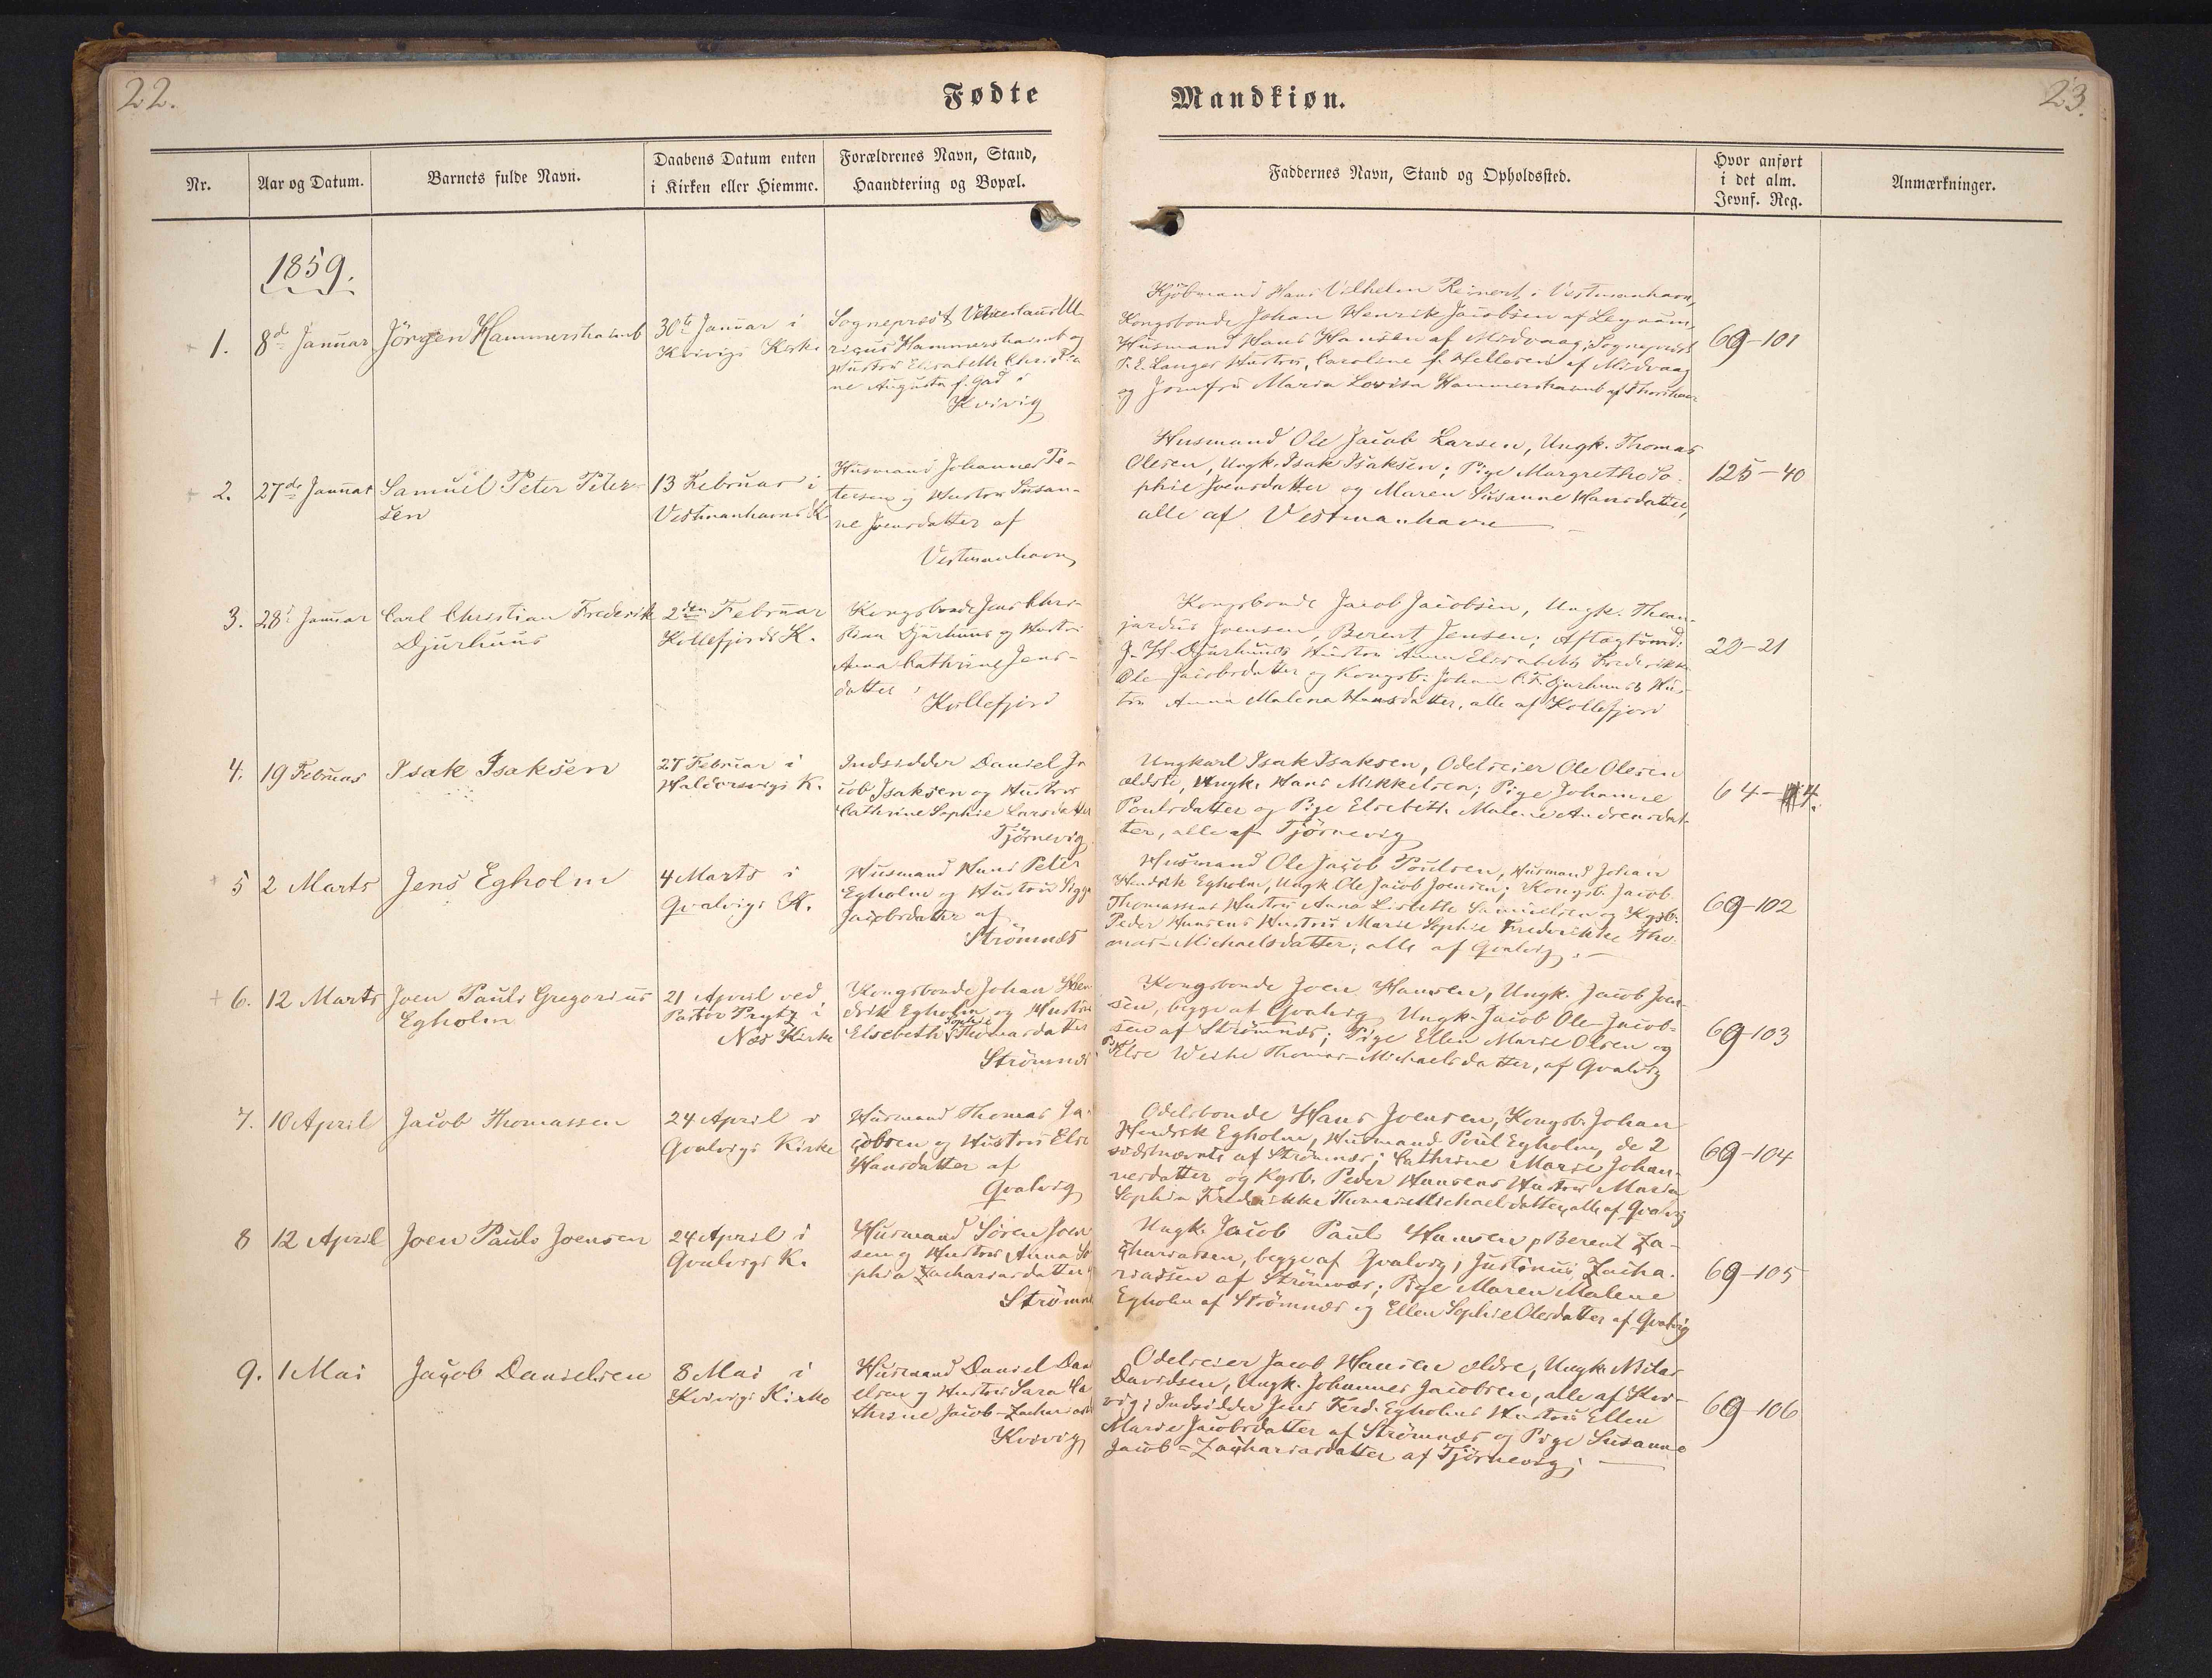 22.
Fødte
Mandkiøn.
23.
Nr.
Aar og Datum.
Barnets fulde Navn.
Daabens Datum enten
i Kirken eller Hiemme.
Forældrenes Navn, Stand,
Haandtering og Bopæl.
Faddernes Navn, Stand og Opholdssted.
Hvor anført
i det alm.
Jevnf. Reg.
Anmærkninger.
1859.
1.
8d Januar
Jörgen Hammershaimb
30te Januar i
Kvivigs Kirke
Sognepræst Venceslaus Ul-
ricus Hammershaimb og
Hustru Elisabeth Christia
ne Augusta f. Gad i
Kvivig
Kjöbmand Hans Vilhelm Reinert i Vestmanhavn,
Kongsbonde Johan Henrik Jacobsen af Leynum,
Husmand Hans Hansen af Midvaag; Sognepræst
P. E. Langes Hustru, Caroline f. Hellesen af Midvaag
og Jomfru Maria Lovisa Hammershaimb af Thorshavn
69-101
2.
27de Januar
Samuel Peter Peter-
sen
13 Februar i
Vestmanhavns K.
Husmand Johannes Pe-
tersen og Hustru Susan-
ne Joensdatter af
Vestmanhavn
Husmand Ole Jacob Larsen, Ungk. Thomas
Olesen, Ungk. Isak Isaksen; Pige Margrethe So-
phie Joensdatter og Maren Susanne Hansdatter,
alle af Vestmanhavn
125-40
3.
28d Januar
Carl Christian Frederik
Djurhuus
2den Februar
Kollefjords K.
Kongsbonde Jens Chri-
stian Djurhuus og Hustru
Anna Cathrine Jens-
datter i
Kollefjord
Kongsbonde Jacob Jacobsen, Ungk.
Joensen, Berent Jensen; Aftægtsmd.
Djurhuus Hustru Anna Elisabeth Frederikke
Ole-Jacobsdatter og Kongsb. Johan C. F. Djurhuus's Hu-
stru Anna Malena Hansdatter, alle af Kollefjord
20-21
4.
19 Februar
Isak Isaksen
27 Februar i
Haldorsvigs K.
Indsidder Daniel Ja
cob Isaksen og Hustru
Cathrine Sophie Larsdatter
Tjörnevig
Ungkarl Isak Isaksen, Odelseier Ole Olesen
ældste, Ungk. Hans Mikkelsen; Pige Johanne
Poulsdatter og Pige Elsebeth Malene Andreasdat-
ter, alle af Tjörnevig
64-4.
5
2 Marts
Jens Egholm
4 Marts i
Qvalvigs K.
Husmand Hans Peter
Egholm og Hustru Sigga
Jacobsdatter af
Strömnæs
Husmand Ole Jacob Poulsen, Husmand Johan
Hendrik Egholm, Ungk. Ole Jacob Joensen; Kongsb. Jacob
Thomassens Hustru Anna Lisbeth Samuelsen og Kgsb.
Peder Hansens Hustru Marie Sophie Frederikke Tho-
mas-Michaelsdatter; alle af Qvalvig.
69-102
6.
12 Marts
Joen Pauli Gregorius
Egholm
21 April ved
Pastor Prytz i
Næs Kirke
Kongsbonde Johan Hen
drik Egholm og Hustru
Elsebeth Sophie Thomasdatter
Strömnæs
Kongsbonde Joen Hansen, Ungk. Jacob Joen-
sen, begge af Qvalvig, Ungk. Jacob Ole-Jacob-
sen af Strömnæs; Pige Ellen Marie Olsen og
P. Else Weihe Thomas-Michaelsdatter, af Qvalvig
69-103
7.
10 April
Jacob Thomassen
24 April i
Qvalvigs Kirke
Husmand Thomas Ja-
cobsen og Hustru Else
Hansdatter af
Qvalvig
Odelsbonde Hans Joensen, Kongsb. Johan
Hendrik Egholm, Husmand Poul Egholm, de 2
sidstnævnte af Strömnæs; Cathrine Marie Johan-
nesdatter og Kgsb. Peder Hansens Hustru Maria
Sophia Frederikke Thomas-Michaelsdatter, alle af Qvalvig
69-104
8
12 April
Joen Paulo Joensen
24 April i
Qvalvigs K.
Husmand Sören Joen
sen og Hustru Anna So
phia Zachariasdatter
Strömnæs
Ungk. Jacob Paul Hansen, Berent Za-
chariassen, begge af Qvalvig, Justinus Zacha-
riassen af Strömnæs; Pige Maren Malene
Egholm af Strömnæs og Ellen Sophie Olesdatter af Qvalvig
69-105
9.
1 Mai
Jacob Danielsen
8 Mai i
Kvivigs Kirke
Husmand Daniel Dan
elsen og Hustru Sara Ca
thrine Jacob-Zacharias
Kvivig
Odelseier Jacob Hansen ældre, Ungk. Niels
Davidsen, Ungk. Johannes Jacobsen, alle af Kvi-
vig; Indsidder Jens Ferd. Egholms Hustru Ellen
Marie Jacobsdatter af Strömnæs og Pige Susanne
Jacob-Zachariasdatter af Tjörnevig;
69-106